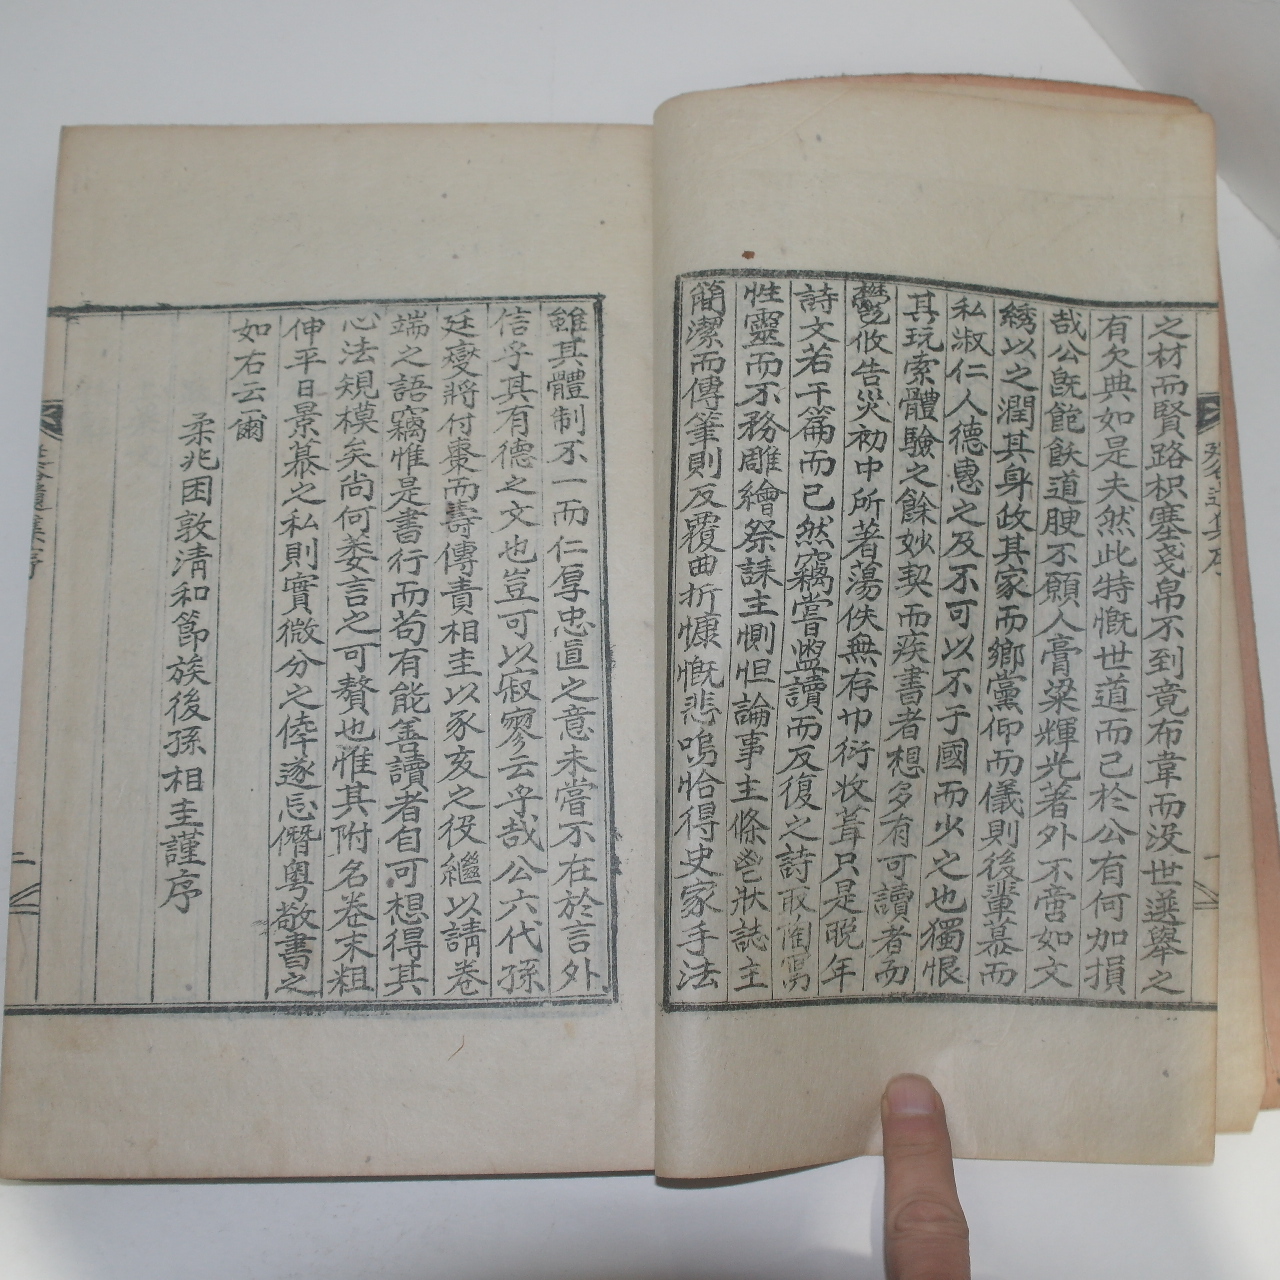 之材而賢路枳塞戔帛不到竟布韋而没世選擧之
有欠典如是夫然此特慨世道而已於公有何加損
哉公旣飽飫道腴不願人膏粱輝光著外不啻如文
綉以之潤其身政其家而鄉黨仰而儀則後輩慕而
私淑仁人德惠之及不可以不于國而少之也獨恨
其玩索體驗之餘妙契而疾書者想多有可讀者而
鬱攸告災初中所著蕩佚無存巾衍收葺只是晩年
詩文若干篇而已然竊嘗盥讀而反復之詩取陶寫
性靈而不務雕繪祭誄主惻怛論事主條鬯狀誌主
簡潔而傳筆則反覆曲折慷慨悲嗚恰得史家手法
雖其體制不一而仁厚忠直之意未嘗不在於言外
信乎其有德之文也豈可以寂寥云乎哉公六代孫
廷燮將付棗而壽傳責相圭以豕亥之役繼以請卷
端之語竊惟是書行而苟有能善讀者自可想得其
心法䂓模矣尚何萎言之可贅也惟其附名卷末粗
伸平日景慕之私則實微分之倖遂忘僭粤敬書之
如右云爾
柔兆困敦淸和節族後孫相圭謹序